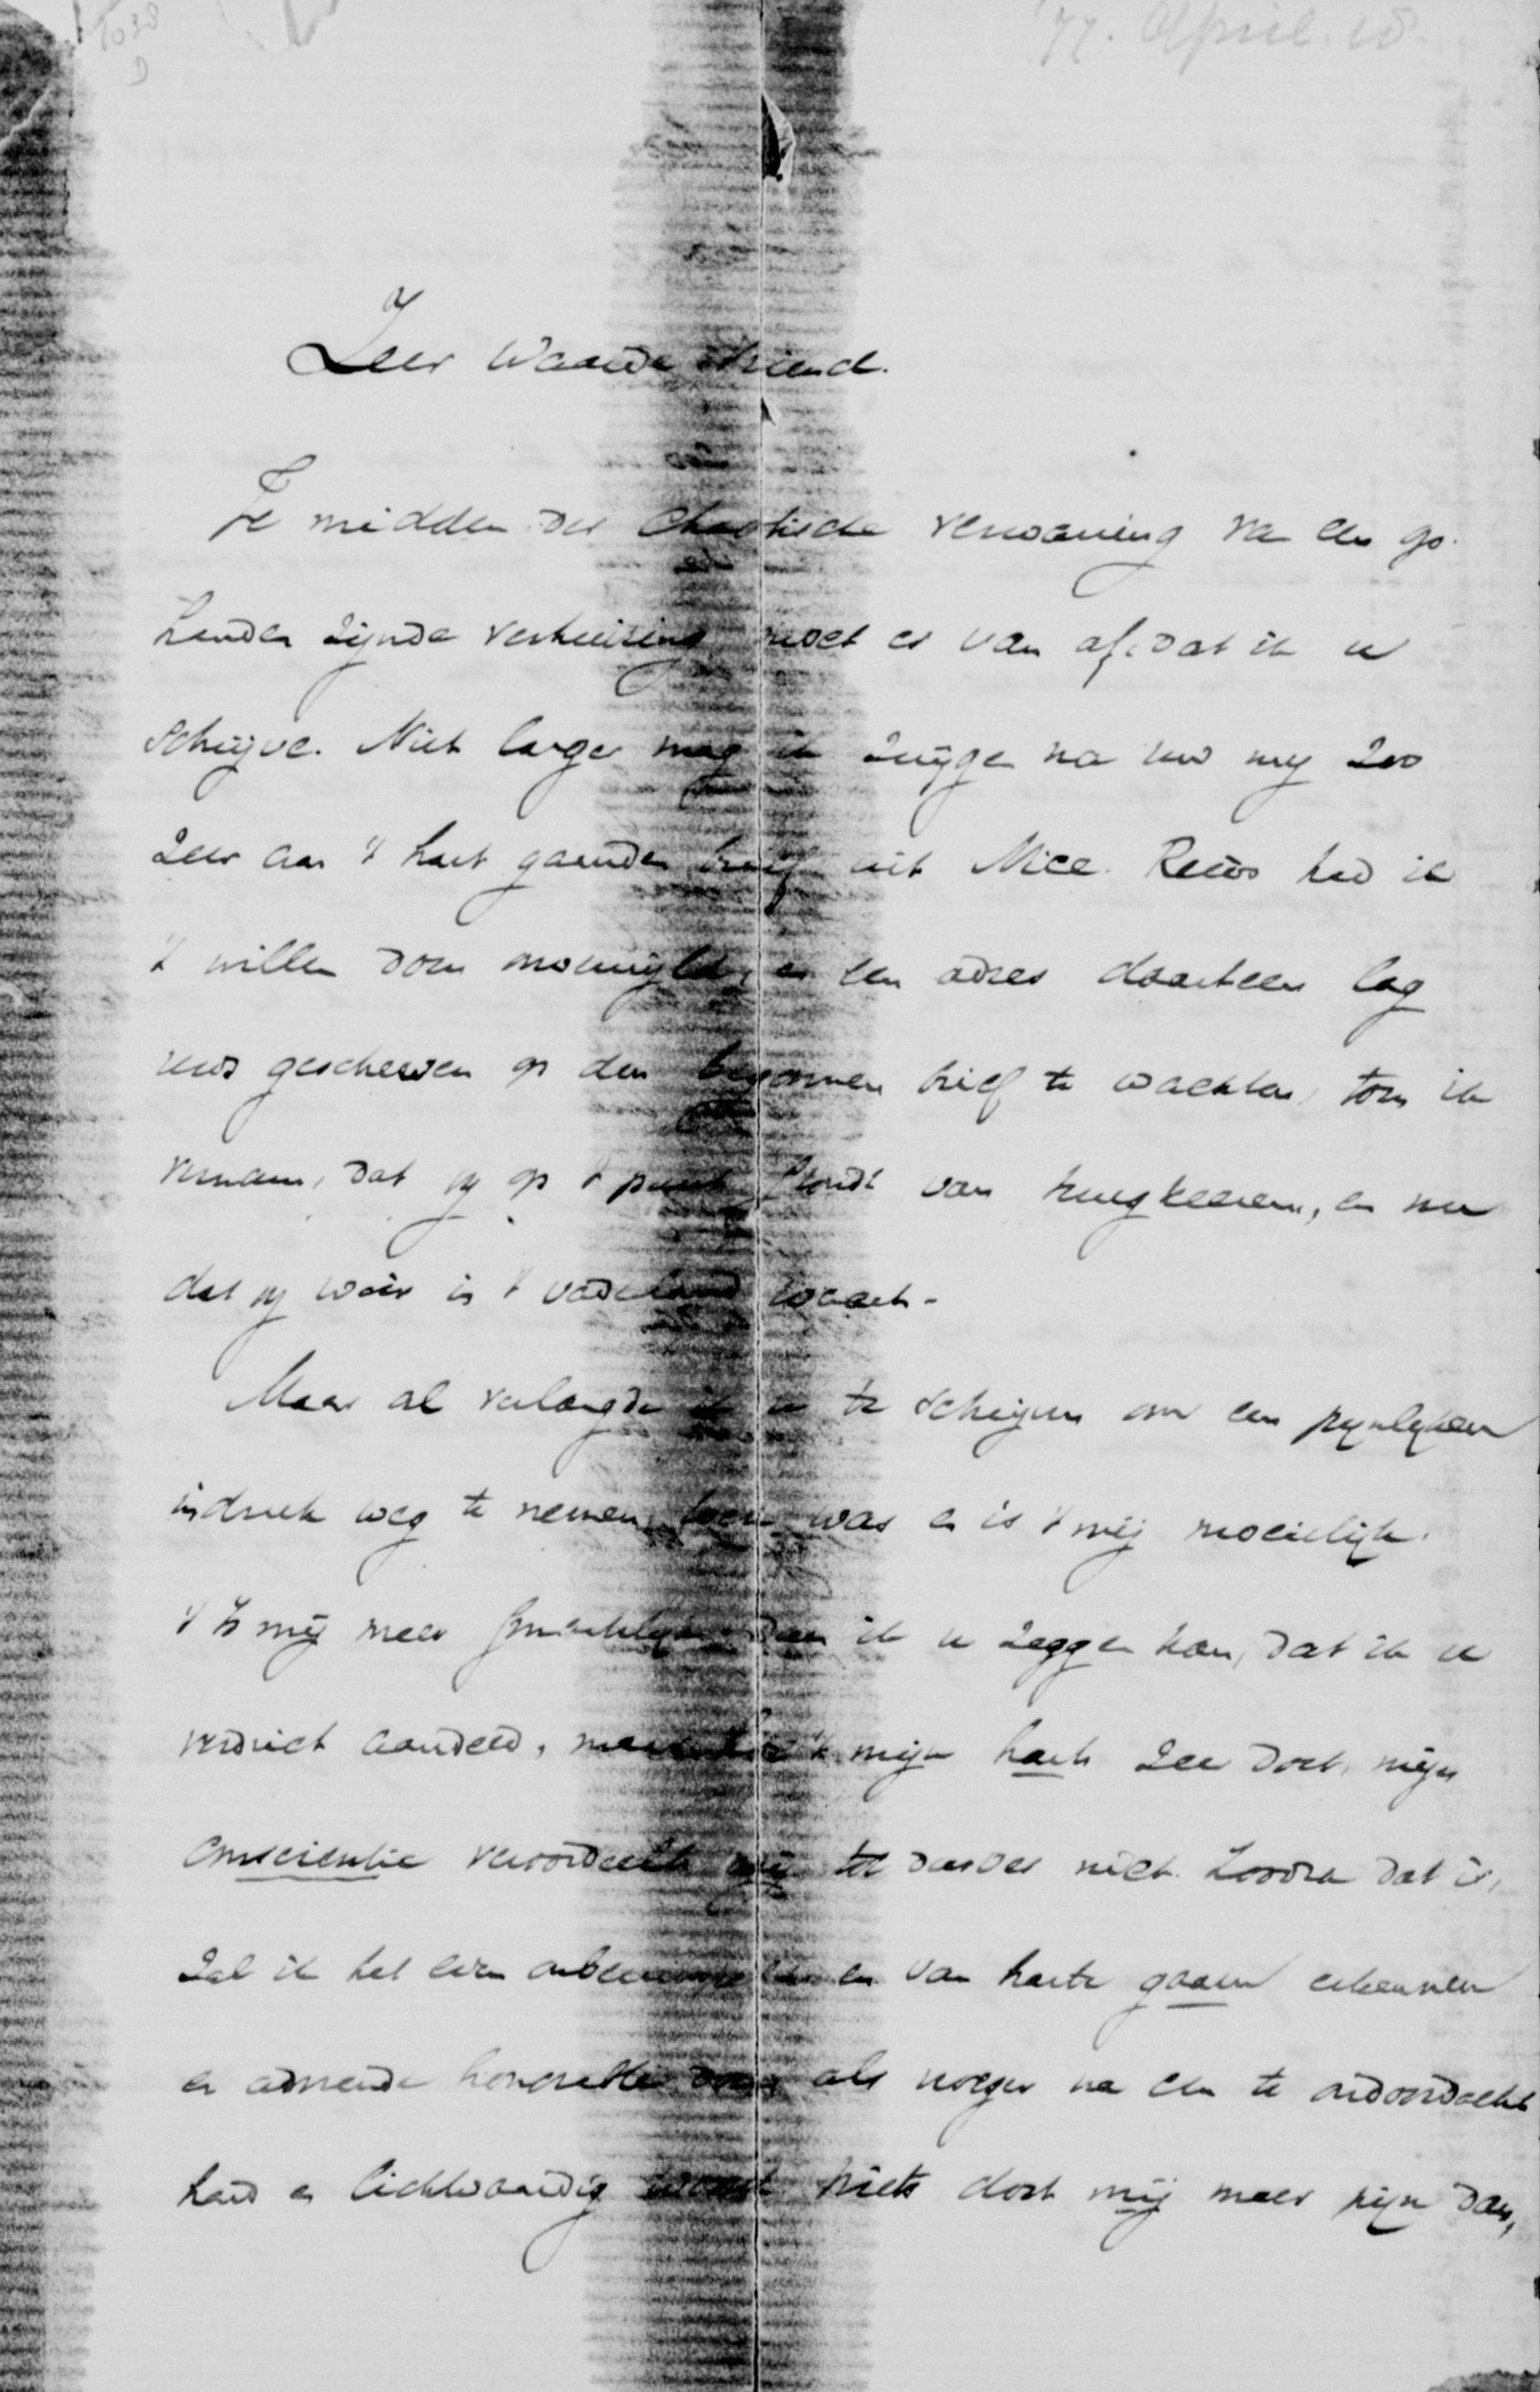 1030
D
'77. April. 18.
Zeer Waarde Vriend.
Te midden der Chaotische verwarring van een op
handen zijnde verhuizing moet er van af, dat ik u
schrijve. Niet langer mag ik zwijgen na uw mij zoo
zeer aan 't hart gaanden brief uit Nice. Reeds had ik
't willen doen en een adres daarheen lag
reeds geschreven op den begonnen brief te wachten, toen ik
vernam, dat gij op 't punt stondt van terugkeeren, en nu
dat gij weer in 't vaderland waart.
Maar al verlangde ik u te schrijven om een pijnlijken
indruk weg te nemen, toch was en is 't mij moeielijk.
't Is mij meer smartelijk dan ik u zeggen kan, dat ik u
verdriet aandeed, maar hoe 't mijn hart zeer doet, mijn
Conscientie veroordeelt mij tot dusver niet. Zoodra dat is,
zal ik het even onbewimpeld en van harte gaarne erkennen
en amende honorable doen als vroeger na een te ondoordacht
hard en lichtvaardig woord. Niets doet mij meer pijn dan,